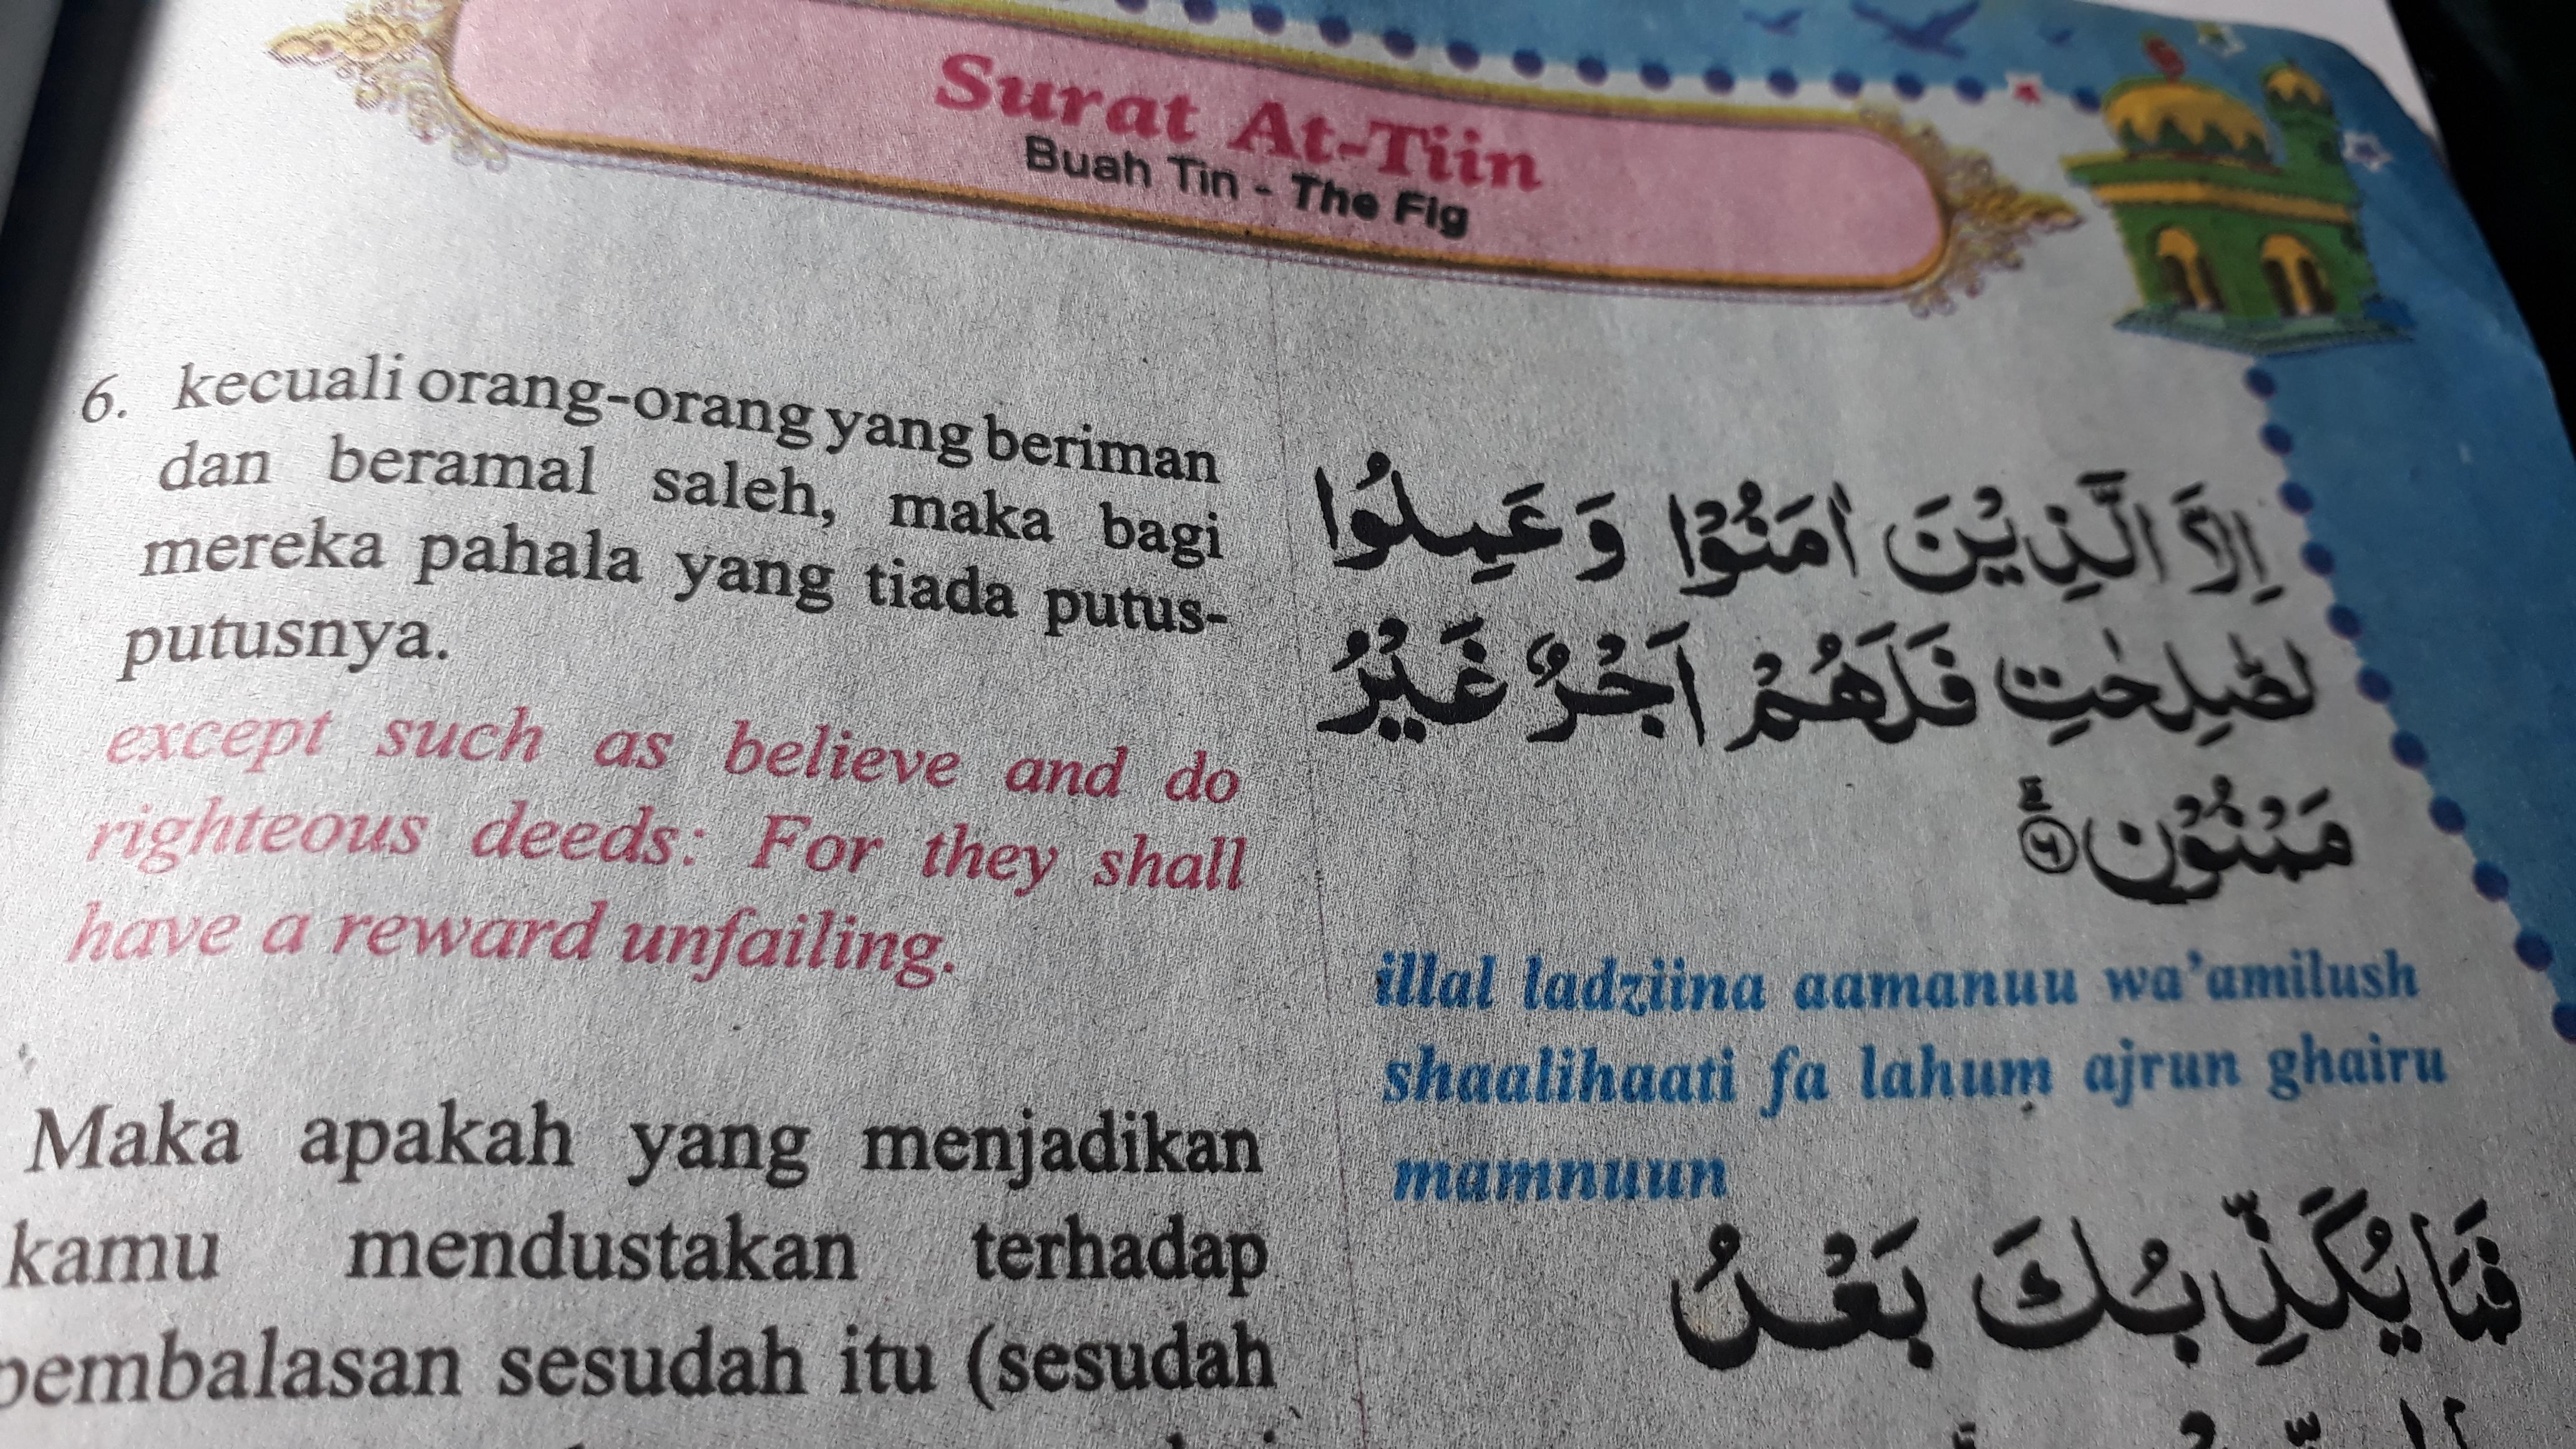 Surat At-Tiin
Buah Tin - The Fig
6. kecuali orang-orang yang beriman
dan beramal saleh, maka bagi
mereka pahala yang tiada putus-
putusnya.
except such as believe and do
righteous deeds: For they shall
have a reward unfailing.
Maka apakah yang menjadikan
kamu mendustakan terhadap
pembalasan sesudah itu (sesudah
اِلاَّ الَّذِيْنَ اٰمَنُوْا وَعَمِلُوا
لصّٰلِحٰتِ فَلَهُمْ اَجْرٌ غَيْرُ
مَمْنُوْنٍ ۗ ٦
illal ladziina aamanuu wa'amilush
shaalihaati fa lahum ajrun ghairu
mamnuun
فَمَا يُكَذِّبُكَ بَعْدُ